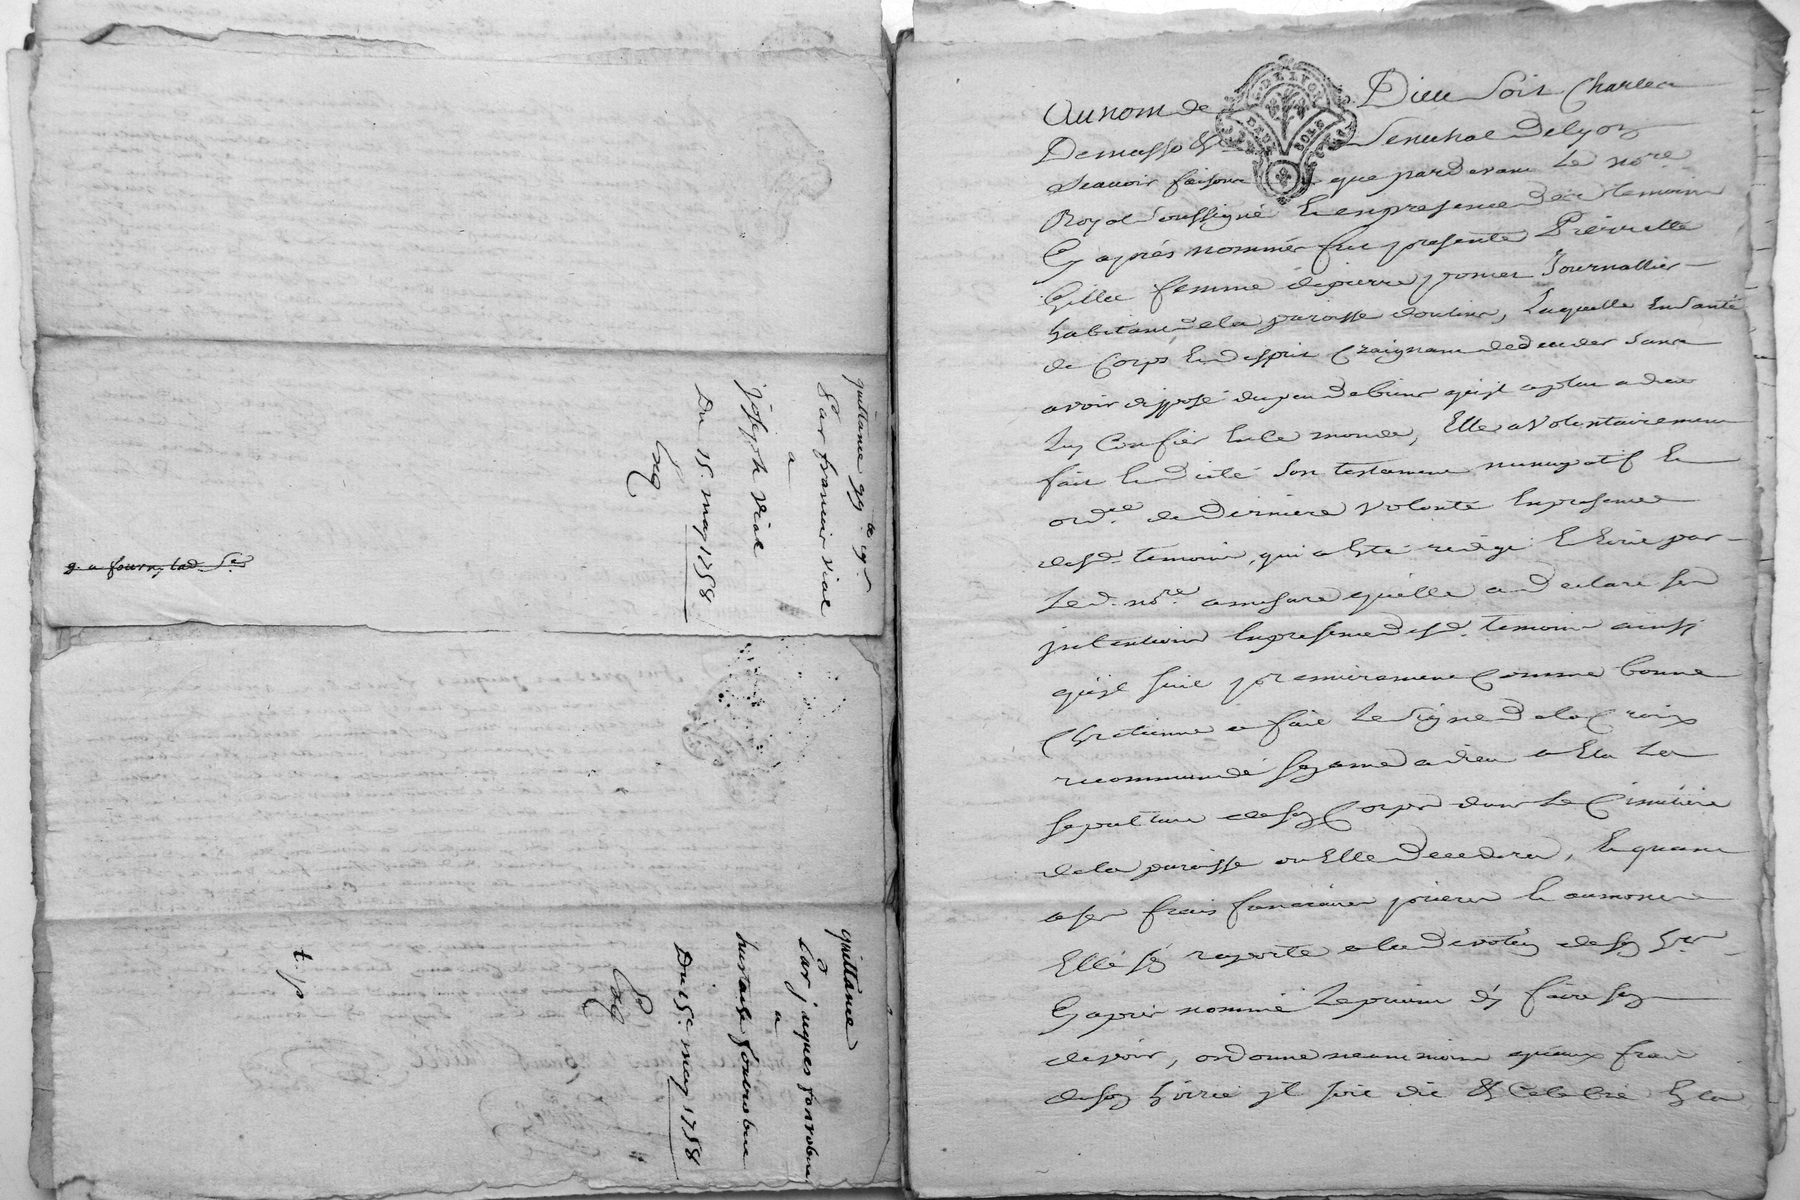 quittance
Par francois vial
a
joseph vial
Du 15. may 1758
Exp
g a fourny lad. Se
quittance
Par jaques fonrobue
a
Du 15e. may 1758
Exp
t. p
G. DE LYON
DEUX SOLS
Au nom de Dieu soit Charles
Demasso Senechal de Lyon
Scavoir faisons que pardevant Le nore.
Royal soussigné Et en presence des temoins
Cy aprés nommés fut presente Pierrette
Gillet femme de pierre poncet Journallier
habitant de la paroisse doulins, Laquelle En santé
de Corps Et desprit Craignant de deceder sans
avoir disposé du peu de biens quil a plu a dieu
Luy Confier En ce monde, Elle a Volontairement
fait Et dicté son testament nuncupatif Et
ordce. de derniere Volonté En presence
desd. temoins, qui a Eté redigé Et Ecrit par
Led. nore. a mesure quelle a declaré ses
intentions En presence desd. temoins ainsi
quil suit premierement Comme bonne
Chretienne a fait Le signe de la Croix
recommandé son ame a dieu a Elu La
sepulture de son Corps dans Le Cimetiere
de la paroisse ou Elle decedera, Et quant
a ses frais funeraires prieres Et aumones
Elle s'en raporte a la devotion de son her
Cy aprés nommé Le priant d'y faire son
devoir, ordonne neanmoins quaux frais
de son hoirie il soit dit Et Celebré En la